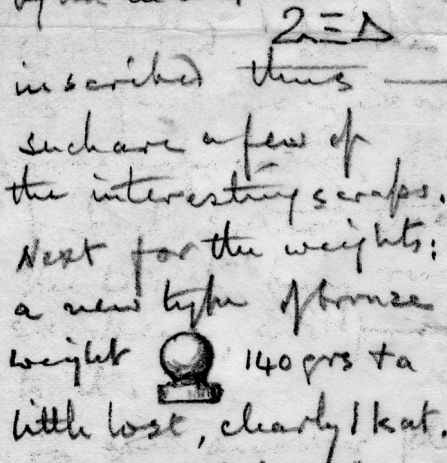 inscribed thus
such are a few of
the interesting scraps.
Next for the weights:
a new type of bronze
weight 140 grs + a
little lost, clearly 1 kat.